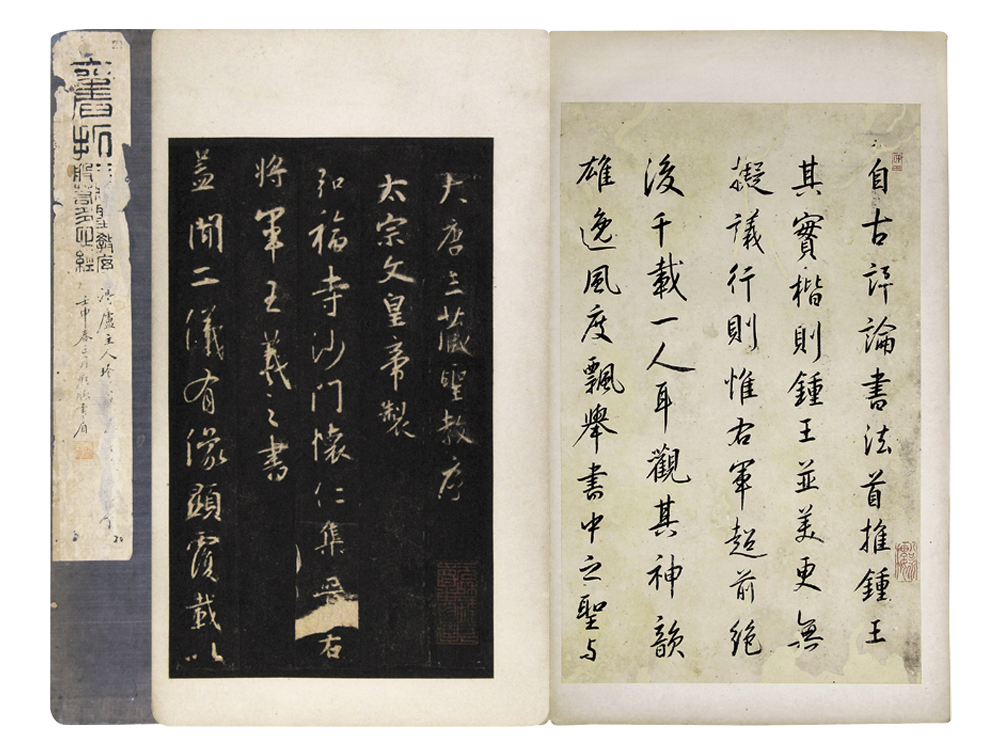 舊拓
聖教序
心經
壬申春三月
大唐三藏聖教序
太宗文皇帝製
弘福寺沙門懷仁集晉右
將軍王羲之書
蓋聞二儀有像顯覆載以
自古評論書法首推鍾王
其實楷則鍾王並美更無
擬議行則惟右軍超前絕
後千載一人耳觀其神韻
雄逸風度飄舉書中之聖与